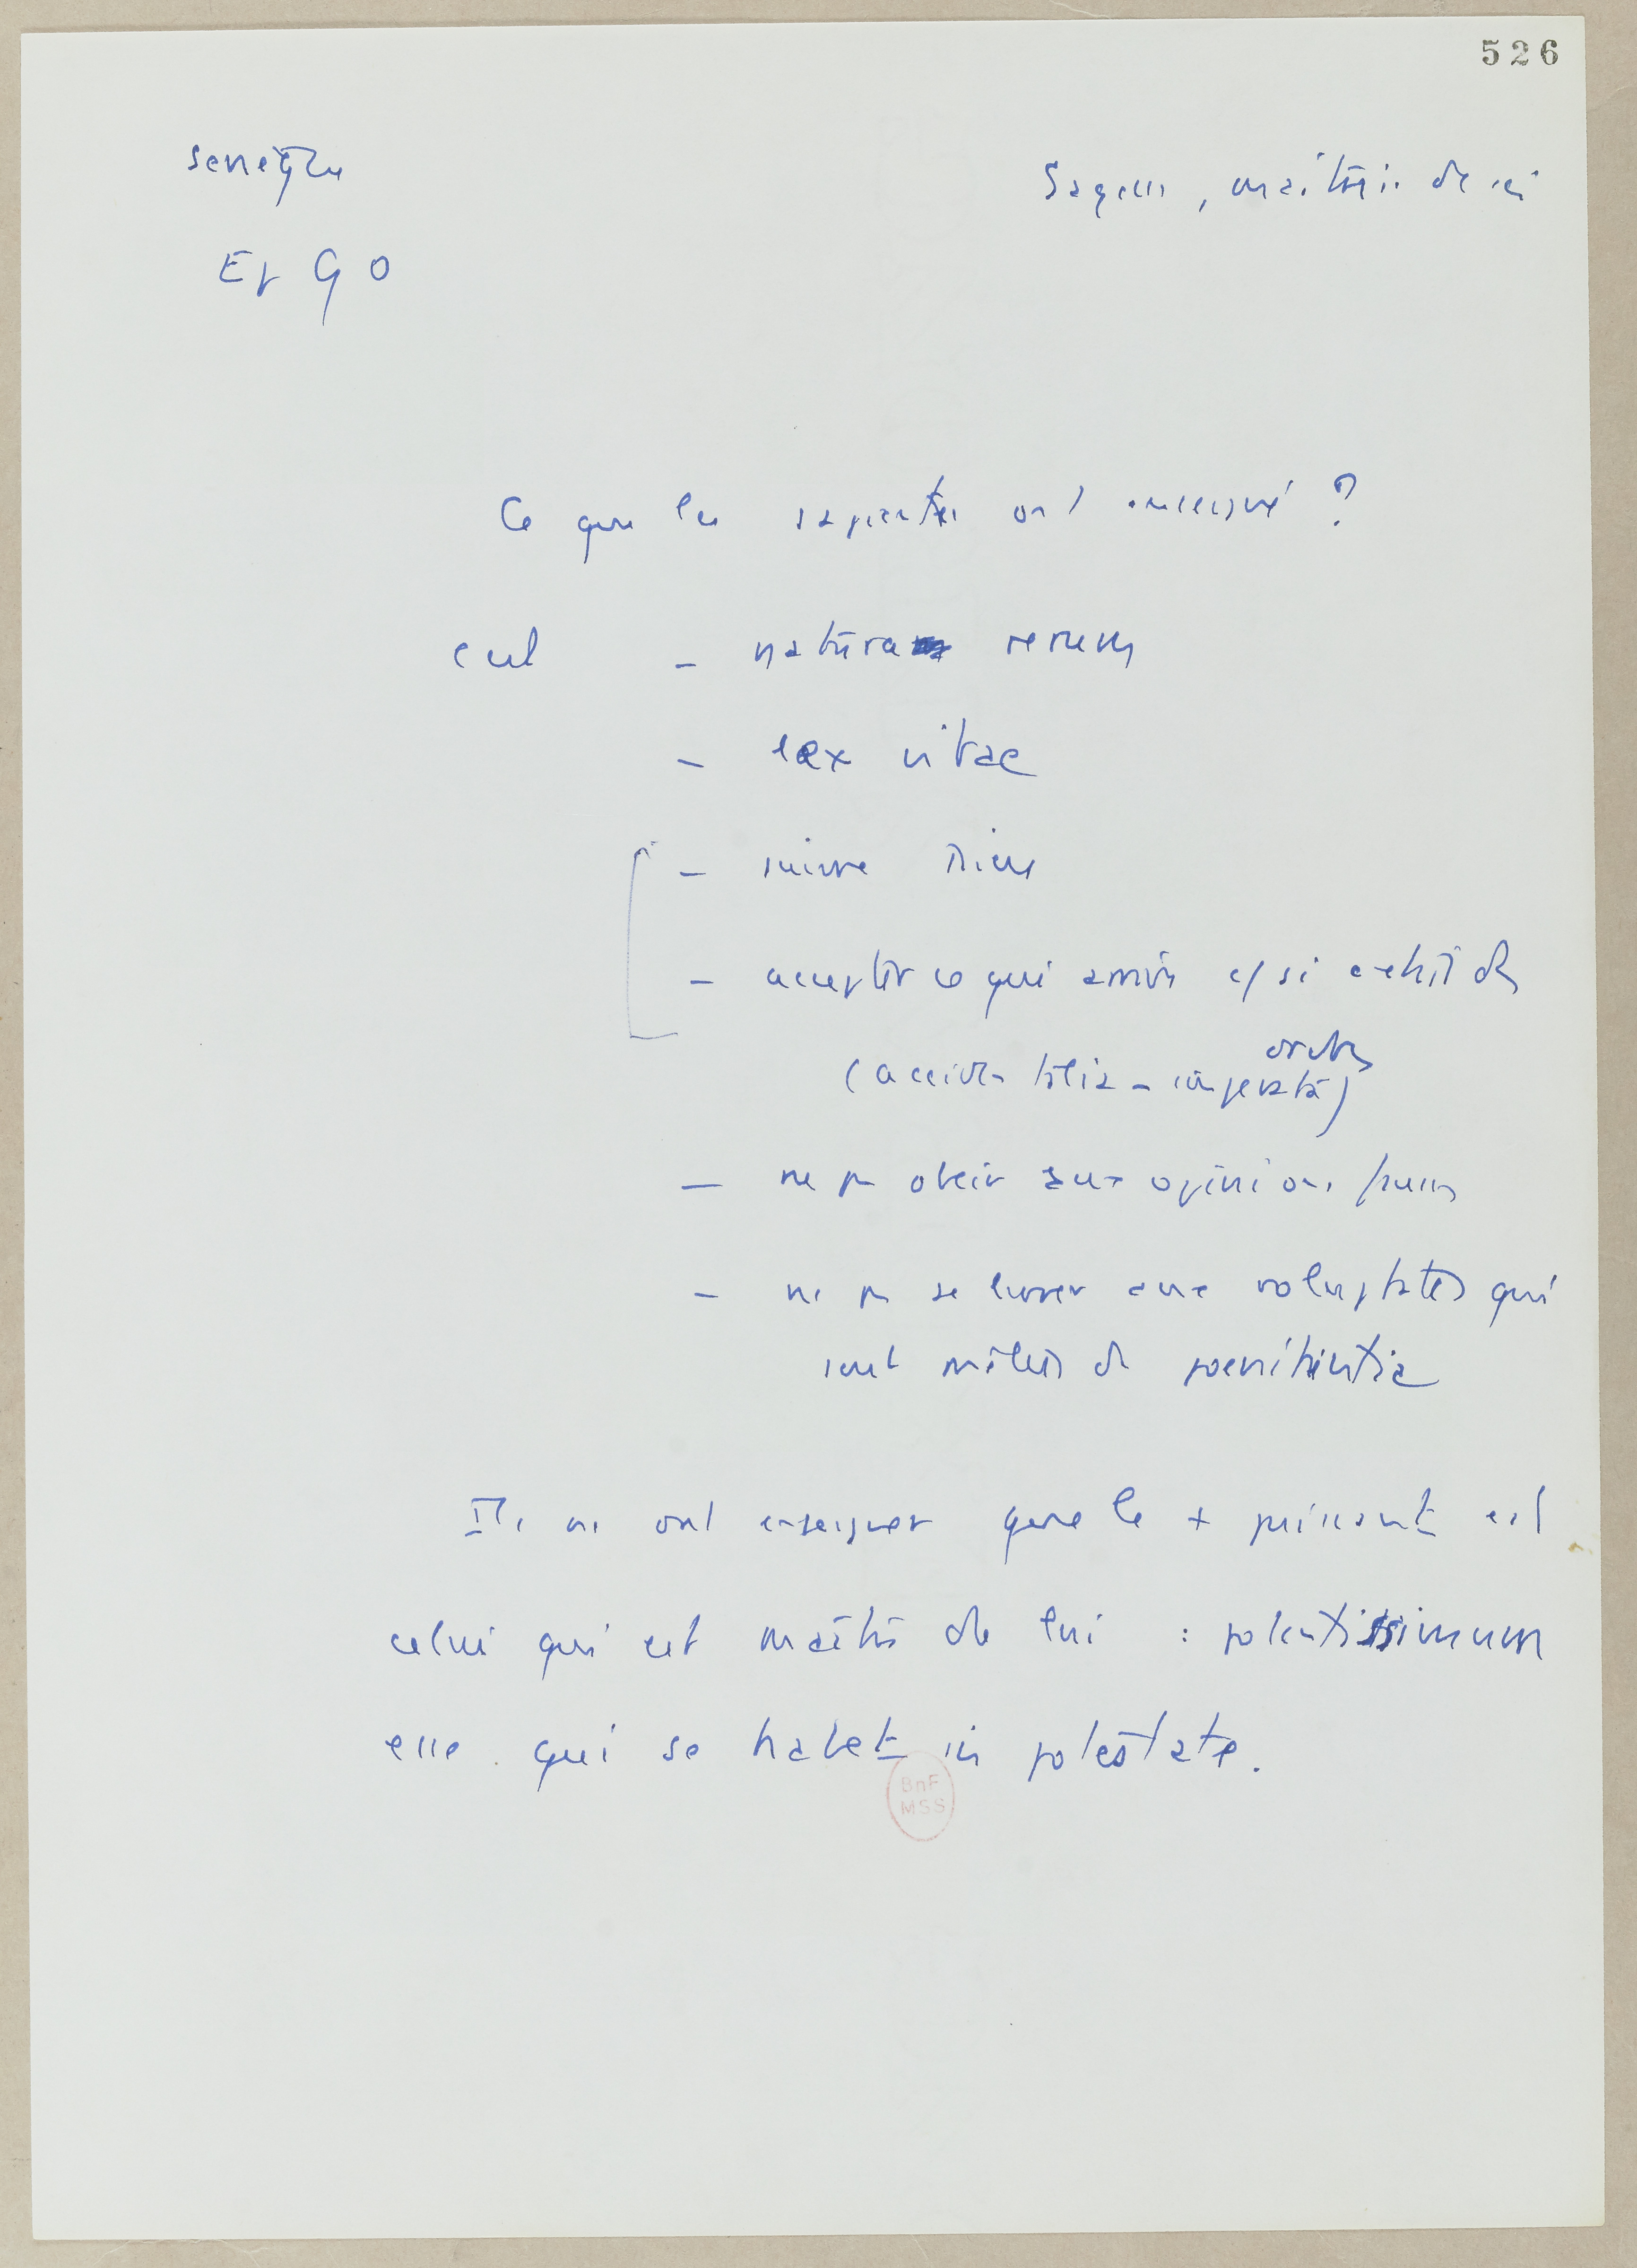 526
Sénèque
Sagesse, maîtrise de soi
Ep 90
Ce que les sapientes ont enseigné ?
c'est - natura rerum
- lex vitae
- suivre Dieu
- accepter ce qui arrive et si
(accidentalia - imperata)
ordres
- ne pas obéir aux opinions fausses
- ne pas se livrer aux voluptates qui
sont mêlées de poenitentia
Ils ns ont enseigner que le + puissant est
celui qui est maître de lui : potentissimum
esse qui se habet in potestate.
BnF
MSS